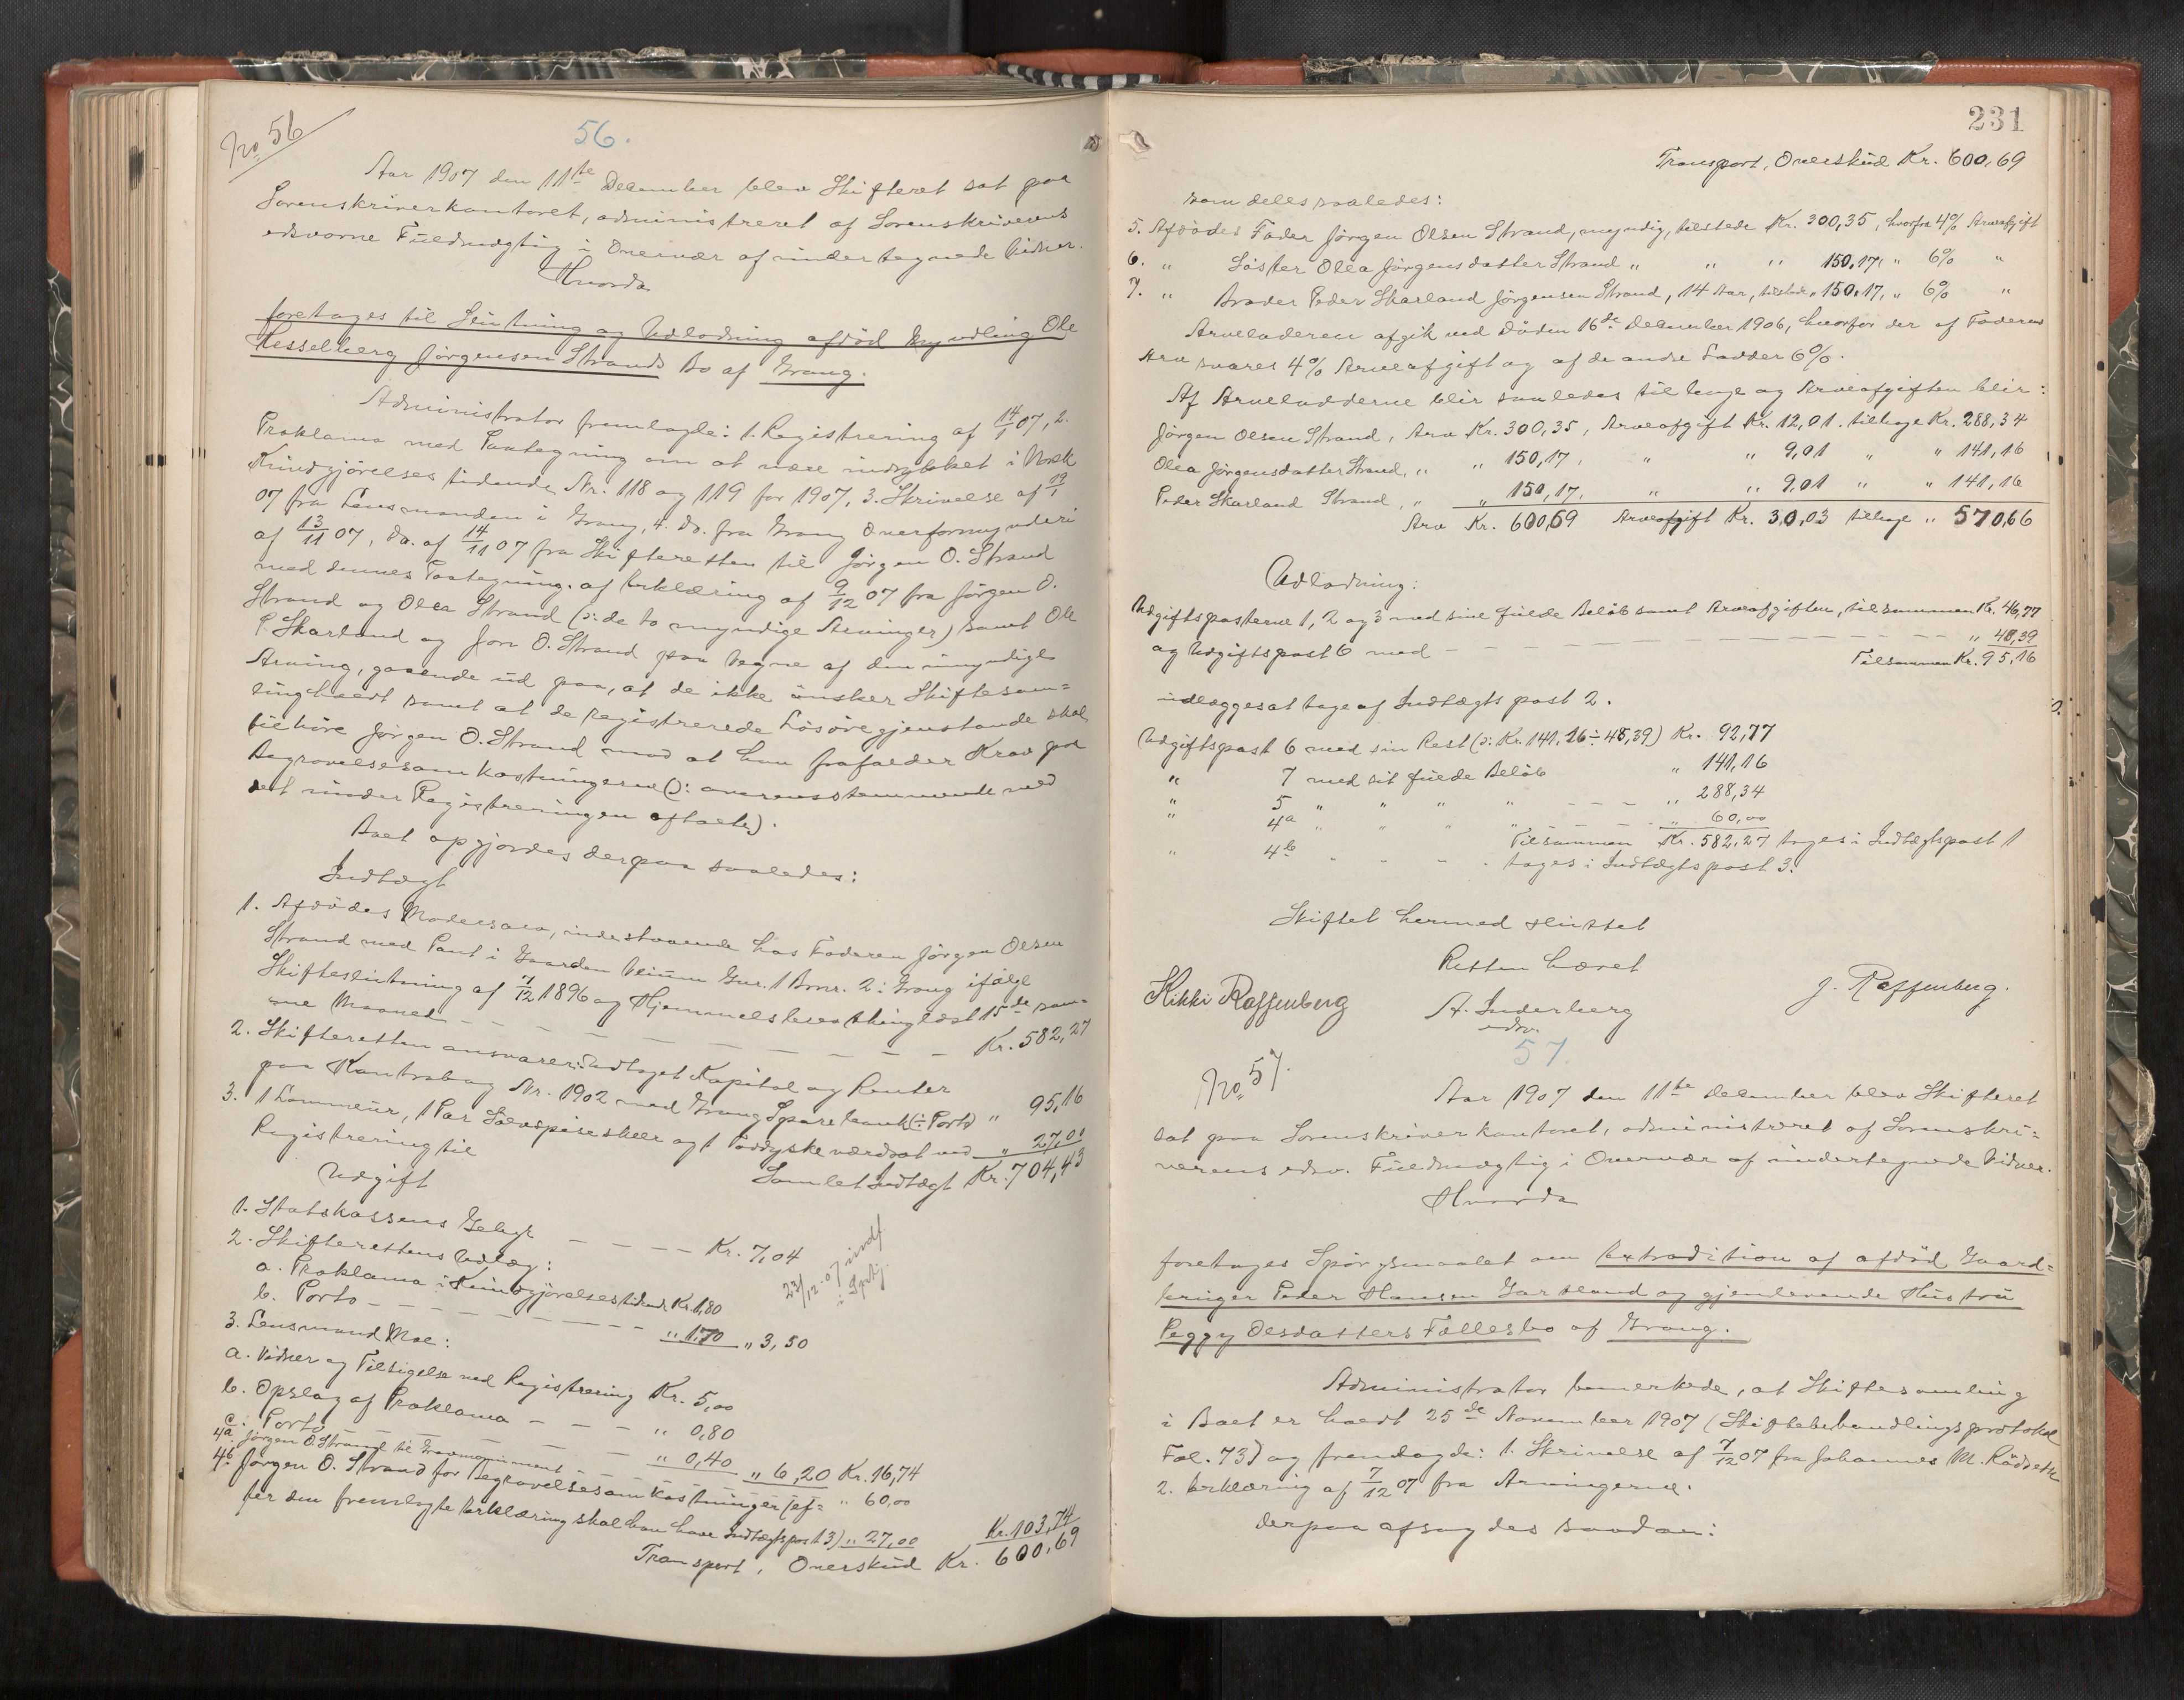 No. 56
56.
Aar 1907 den 11te December blev Skifteret sat paa
Sorenskriverkontoret, administreret af Sorenskriverens
edsvorne Fuldmægtig i Overvær af undertegnede Vidner.
Hvorda
foretages til Slutning og Udlodning afdød Myndling Ole
Hesselberg Jørgensen Strands Bo af Grong.
Administrator fremlagde: 1. Registrering af 14/1 07, 2.
Proklama med Paategning om at være indrykket i Norsk
Kundgjørelsestidende Nr. 118 og 119 for 1907, 3. Skrivelse af
07 fra Lensmanden i Grong, 4. Do. fra Grong Overformynderi
af 13/11 07, Do. af 14/11 07 fra Skifteretten til Jørgen O. Strand
med dennes Paategning. af Erklæring af 9/12 07 fra Jørgen O.
Strand og Olea Strand (ɔ: de to myndige Arvinger) samt Ole
P. Skarland og Jon O. Strand paa Vegne af den umyndige
Arving, gaaende ud paa, at de ikke ønsker Skiftesam=
ling holdt samt at de registrerede Løsøregjenstande skal
tilhøre Jørgen O. Strand mod at han frafalder Krav paa
Begravelsesomkostningerne (ɔ: overensstemmende med
det under Registreringen aftalte).
Boet opgjordes derpaa saaledes:
Indtægt
1. Afdødes Modersarv, indestaaende hos Faderen Jørgen Olsen
Strand med Pant i Gaarden Veium Gnr. 1 Bnr. 2 i Grong ifølge
Skifteslutning af 7/12 1896 og Hjemmelsbrev thinglæst 15de sam-
me Maaned — — — — — — — — Kr. 582,27
2. Skifteretten ansvarer: Udtaget Kapital og Renter
paa Kontrabog Nr. 1902 med Grong Sparebank (÷ Porto) " 95,16
3. 1 Lommeur, 1 Par Sølvspiseskeer og 1 værdsat ved
Registrering til " 27,00
Samlet Indtægt Kr. 704,43
Udgift
1. Statskassens Gebyr — — — — Kr. 7,04
2. Skifterettens Udlæg:
a. Proklama i Kundgjørelsestidende Kr. 1,80
b. Porto — — — — — — — " 1,70 " 3,50
23/12.07 indf
i Sptj.
3. Lensmand Moe:
a. Vidner og Tilsigelse ved Registrering Kr. 5,00
b. Opslag af Proklama — — — " 0,80
c. Porto — — — — — " 0,40 " 6,20 Kr. 16,74
4a. Jørgen O. Strand til Gravmonument — — — " 60,00
4b. Jørgen O. Strand for Begravelsesomkostninger (ef=
ter den fremlagte Erklæring skal han have Indtægtspost 3) " 27,00 Kr. 103,74
Transport, Overskud Kr. 600,69
231
Transport, Overskud Kr. 600,69
som deles saaledes:
5. Afdødes Fader Jørgen Olsen Strand, myndig, tilstede Kr. 300,35, hvorfra 4% Arveafgift
6. " Søster Olea Jørgensdatter Strand " " " 150,17, " 6% "
7. " Broder Peder Skarland Jørgensen Strand, 14 Aar, tilstede " 150,17, " 6% "
Arveladeren afgik ved Døden 16de December 1906, hvorfor der af Faderens
Arv svares 4% Arveafgift og af de andre Lodder 6%.
Af Arvelodderne blir saaledes tilbage og Arveafgiften blir:
Jørgen Olsen Strand, Arv Kr. 300,35, Arveafgift Kr. 12,01. tilbage Kr. 288,34
Olea Jørgensdatter Strand, " " 150,17, " " 9,01 " " 141,16
Peder Skarland Strand, " " 150,17, " " 9,01 " " 141,16
Arv Kr. 600,69 Arveafgift Kr. 30,03 tilbage " 570,66
Udlodning:
Udgiftsposterne 1, 2 og 3 med sine fulde Beløb samt Arveafgiften, tilsammen Kr. 46,77
og Udgiftspost 6 med — — — — — — — — — " 48,39
Tilsammen Kr. 95,16
udlægges at tage af Indtægtspost 2.
Udgiftspost 6 med sin Rest (ɔ: Kr. 141,16 ÷ 48,39) Kr. 92,77
" 7 med sit fulde Beløb " 141,16
" 5 " " " " — — — " 288,34
" 4a " " " " — — — " 60,00
Tilsammen Kr. 582,27 tages i Indtægtspost 1
" 4b " " " " tages i Indtægtspost 3.
Skiftet hermed sluttet
Retten hævet
Kikki Raffenberg
A. Inderberg
edsv.
J. Raffenberg.
57.
No. 57.
Aar 1907 den 11te December blev Skifteret
sat paa Sorenskriverkontoret, administreret af Sorenskri=
verens edsv. Fuldmægtig i Overvær af undertegnede Vidner.
Hvorda
foretages Spørgsmaalet om Extradition af afdød Gaard=
bruger Peder Hansen Gartland og gjenlevende Hustru
Peggy Olsdatters Fællesbo af Grong.
Administrator bemerkede, at Skiftesamling
i Boet er holdt 25de November 1907 (Skiftebehandlingsprotokol
Fol. 73) og fremlagde: 1. Skrivelse af 7/12 07 fra Johannes M.
2. Erklæring af 7/12 07 fra Arvingerne.
Derpaa afsagdes saadan: